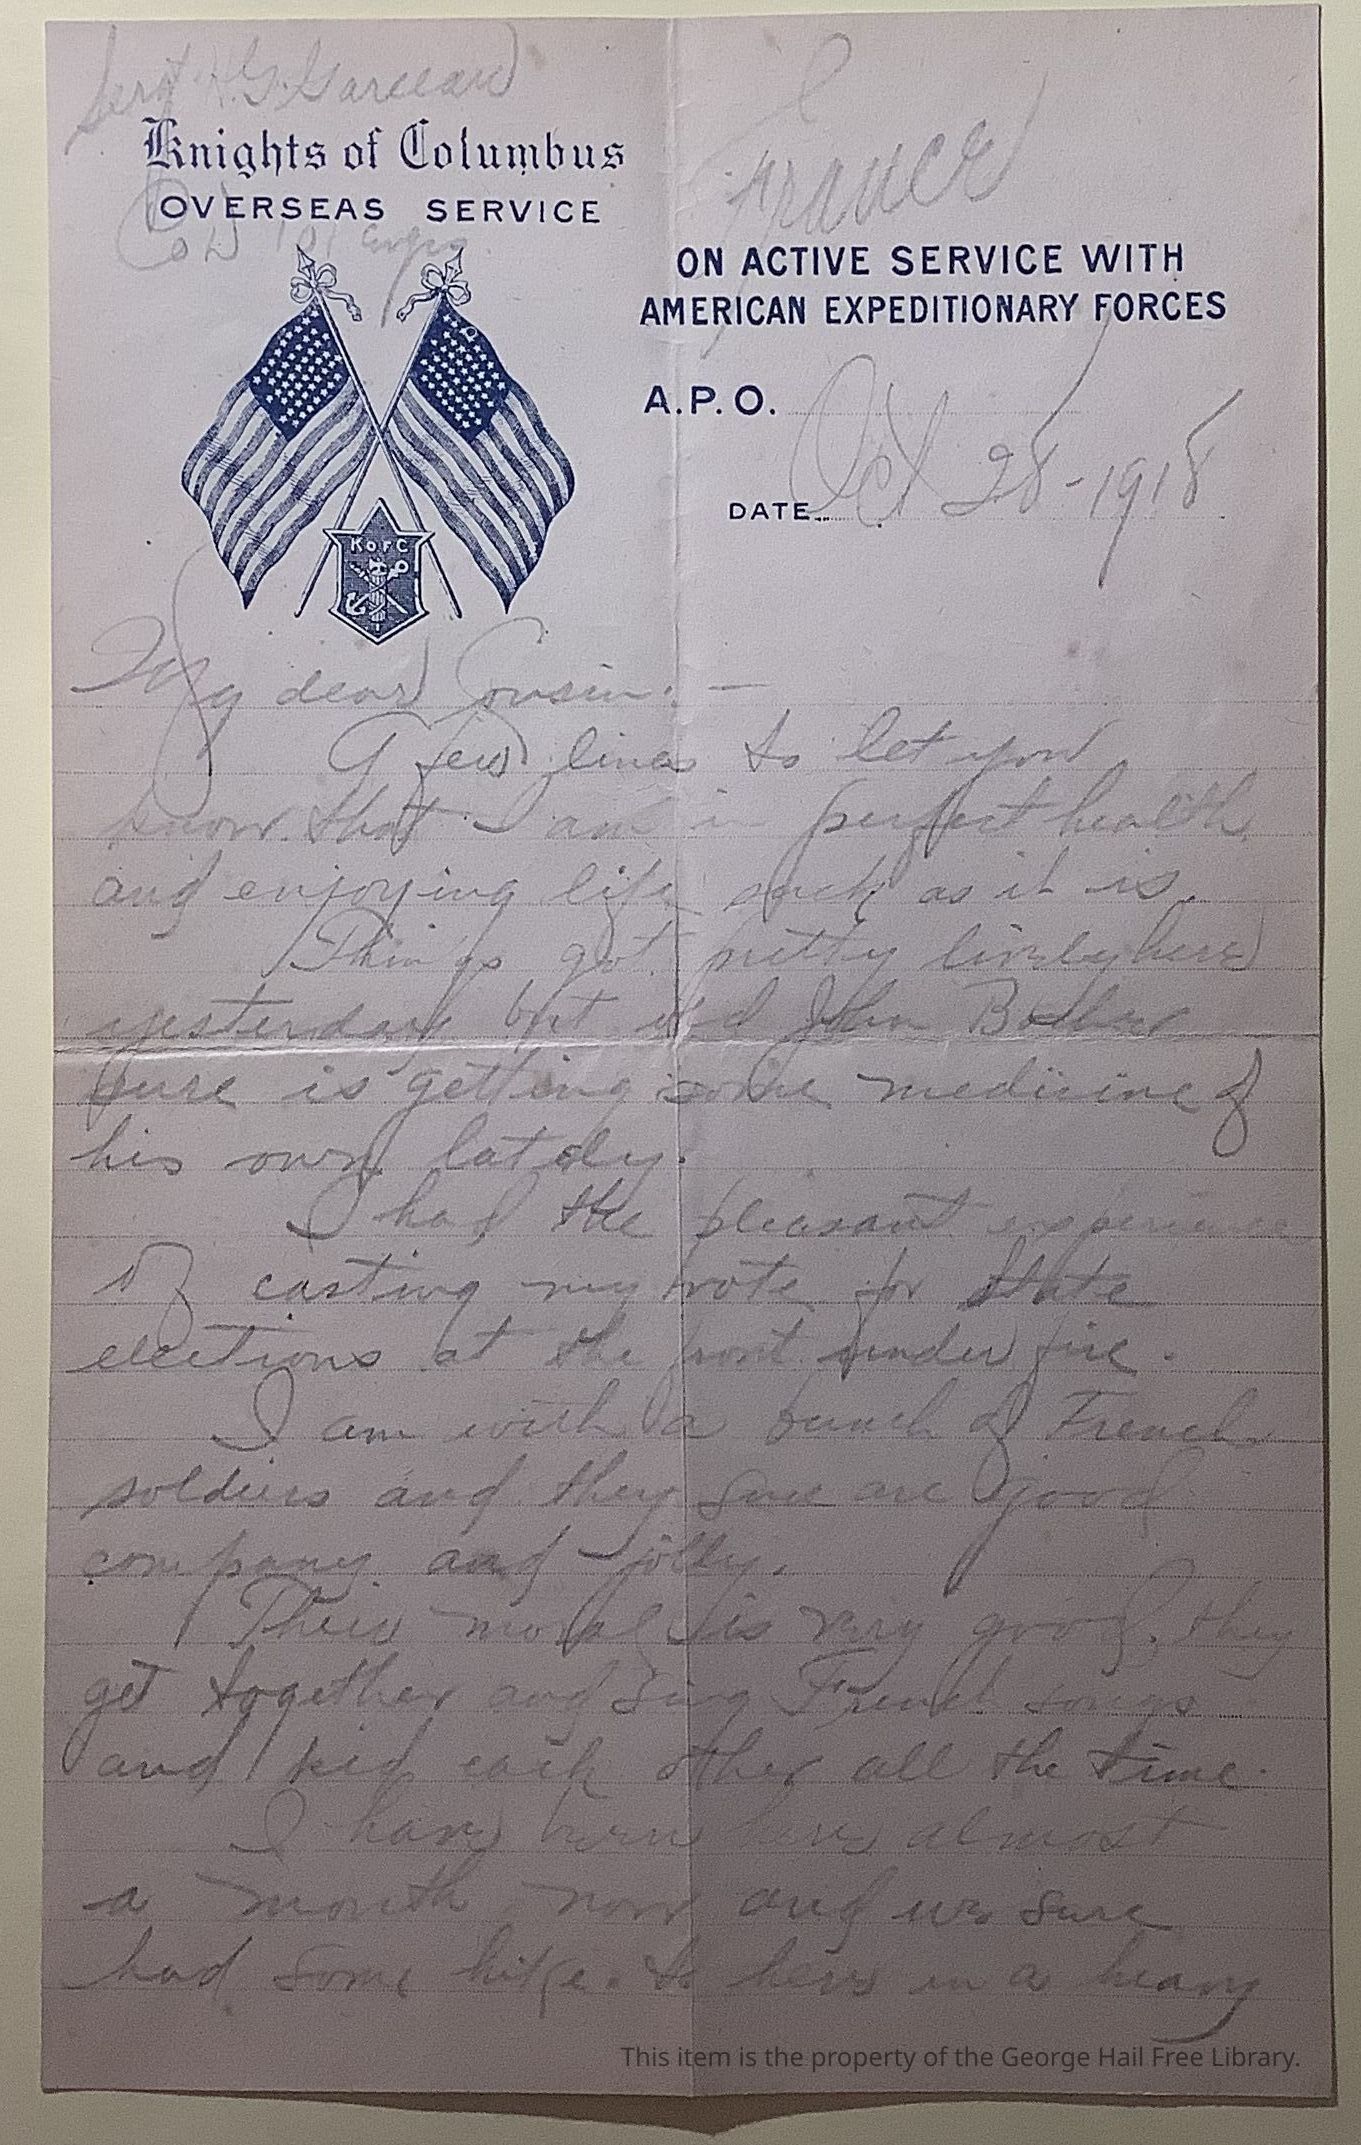 Sergt H.G. Garceau
Knights of Columbus
OVERSEAS SERVICE
Co D 101 Engrs
France
ON ACTIVE SERVICE WITH
AMERICAN EXPEDITIONARY FORCES
A.P.O.
DATE Oct 28-1918
K of C
My dear Cousin:—
A few lines to let you
know that I am in perfect health
and enjoying life such as it is.
Things got pretty lively here
yesterday but old John Boche
sure is getting some medicine of
his own lately.
I had the pleasant experience
of casting my vote for State
elections at the front under fire.
I am with a bunch of French
soldiers and they sure are good
company and jolly.
Their moral is very good. they
get together and sing French songs
and kid each other all the time.
I have been here almost
a month now and we sure
had some hike. to here in a heavy
This item is the property of the George Hail Free Library.